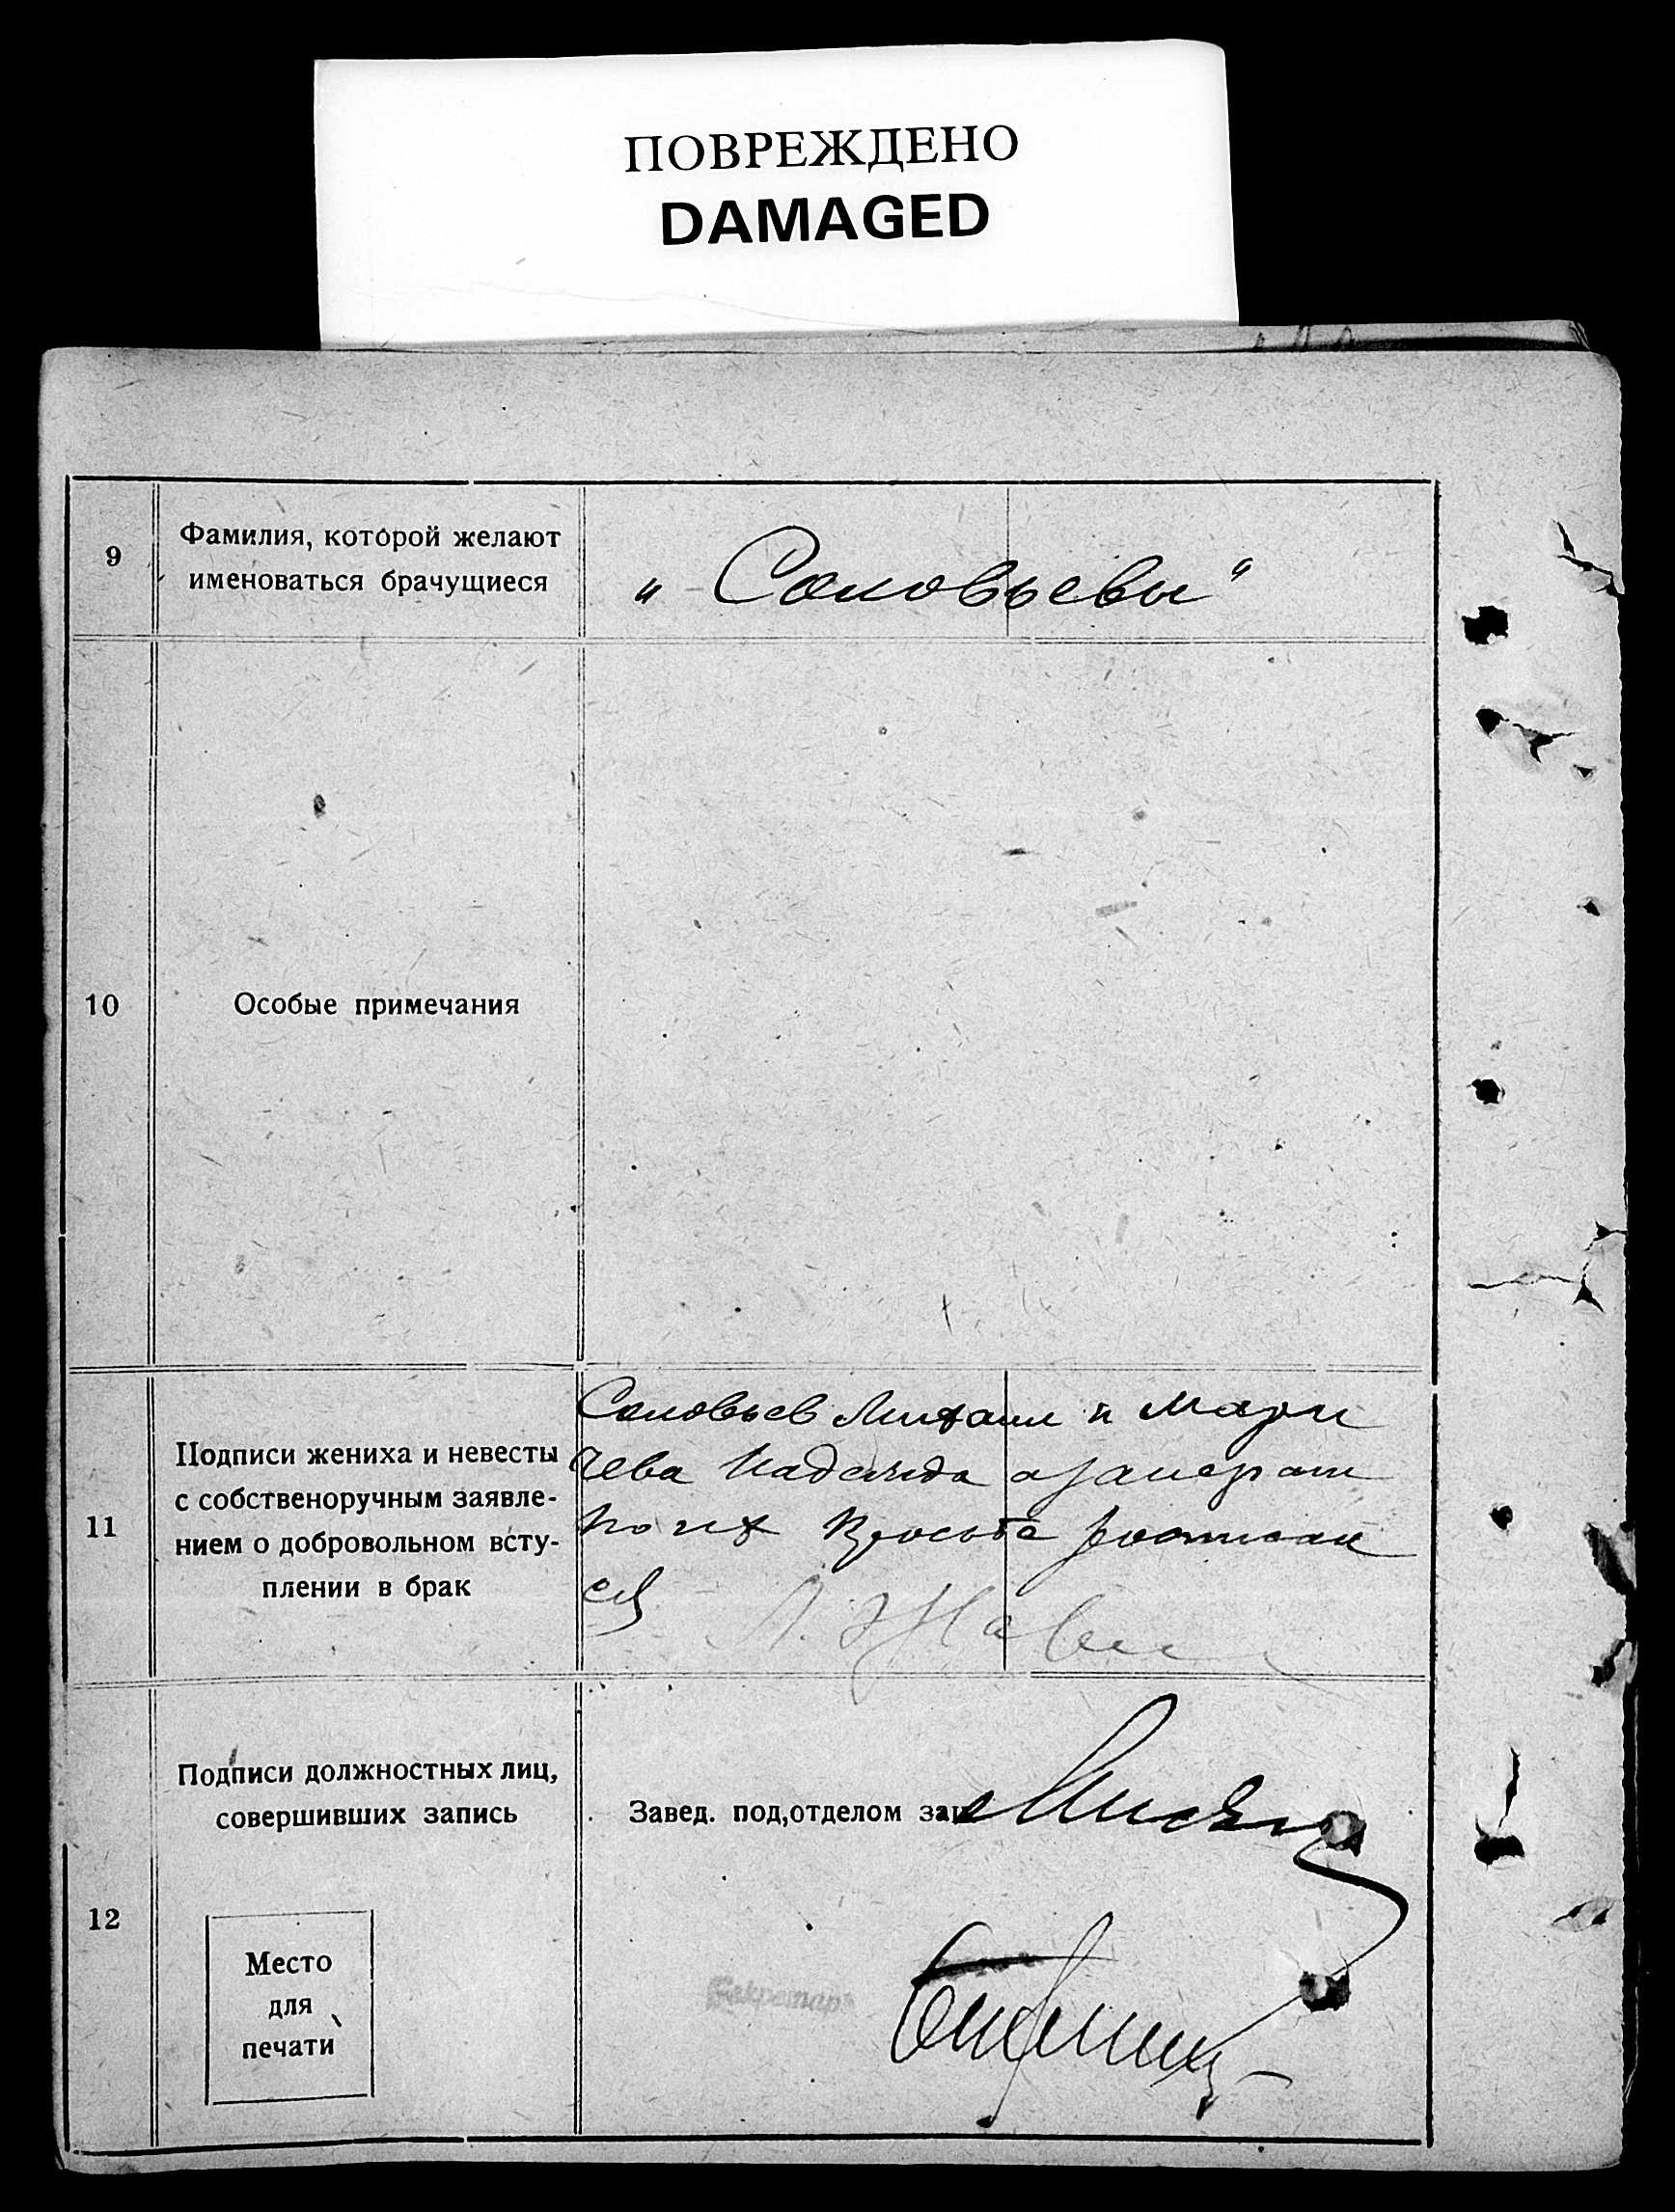 ПОВРЕЖДЕНО
DAMAGED
9
Фамилия, которой желают
именоваться брачущиеся
„Соловьевы“
10
Особые примечания
11
Подписи жениха и невесты
с собственоручным заявле-
нием о добровольном всту-
плении в брак
Соловьев Михаил и Мари
чева Надежда
по их Просьбе
ся
12
Подписи должностных лиц,
совершивших запись
Завед. под,отделом
Секретарь
Место
для
печати